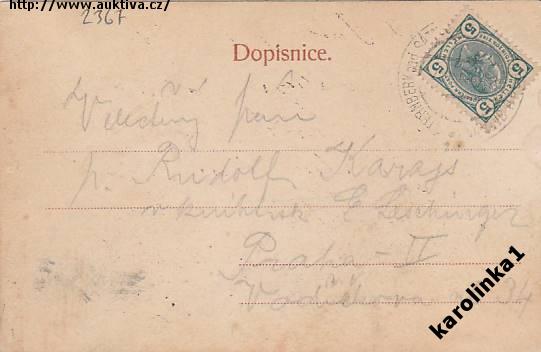 http://www.auktiva.cz/
2367
Dopisnice.
5 5 5 5
STERNBERK
Velectěný pán
p. Rudolf Karajs
v knihtisk E Leschinger
Praha - II
Vodičkova 34
karolinka1